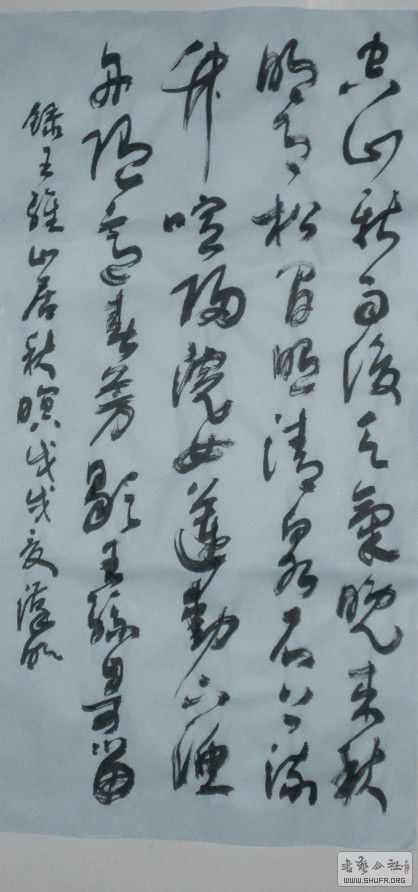 空山新雨後天氣晚来秋
明月松间照清泉石上流
竹喧歸浣女蓮動下漁
舟随意春芳歇王孫自可留
録王維山居秋暝戊戌夏
书艺公社
WWW.SHUFA.ORG